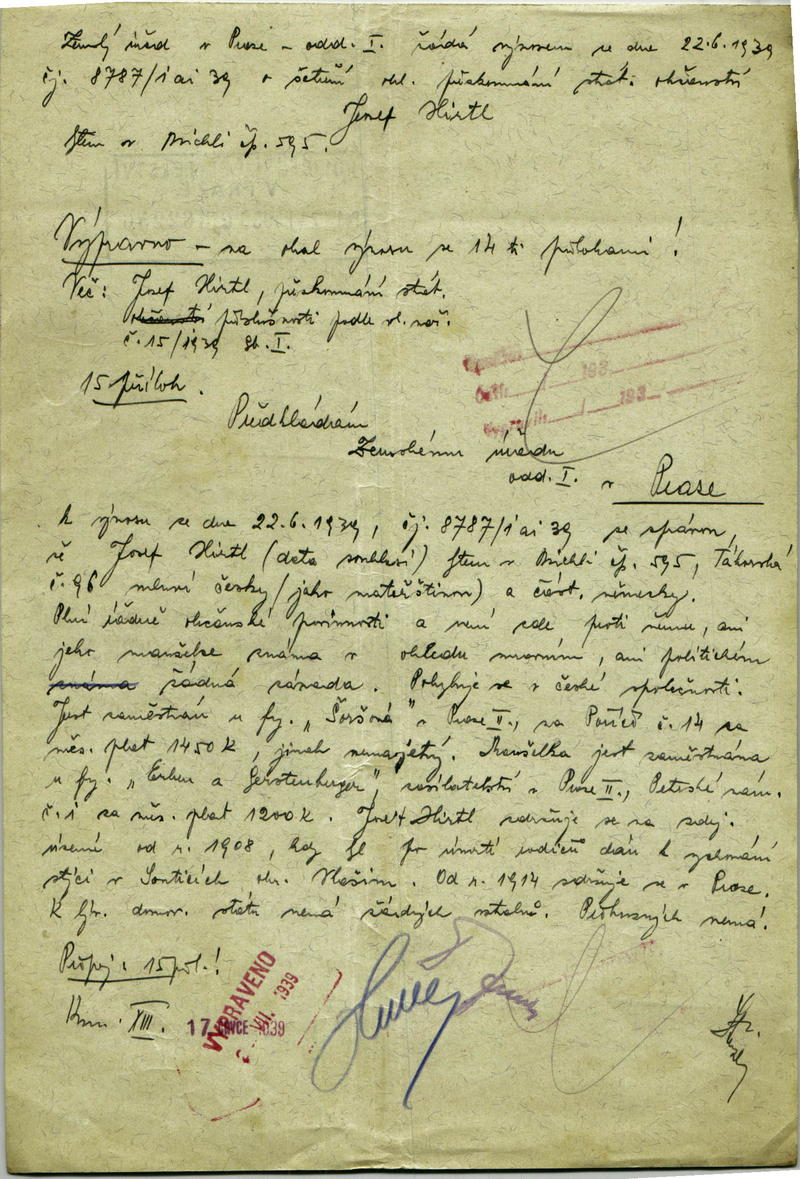 Zemský úřad v Praze – odd. I. žádá výnosem ze dne 22.6.1939
čj. 8787/1 ai 39 o šetření ohl. přezkoumání stát. občanství
Josef Hirtl
bytem v Michli čp. 595.
Výpravno – na obal výnosu se 14 ti přílohami!
Věc: Josef Hirtl, přezkoumání stát.
občanství příslušnosti podle vl. nař.
č. 15/1939 Sb. I.
15 příloh.
Předkládám
Zemskému úřadu
odd. I. v Praze
k výnosu ze dne 22.6.1939, čj. 8787/1 ai 39 se zprávou,
že Josef Hirtl (data souhlasí) bytem v Michli čp. 595, Táborská
č. 96 mluví česky (jako mateřštinou) a část. německy.
Plní řádně občanské povinnosti a není zde proti němu, ani
jeho manželce známa v ohledu mravním, ani politickém
známa žádná závada. Pohybuje se v české společnosti.
Jest zaměstnán u fy. „ " v Praze II., na Poříčí č. 14 za
měs. plat 1450 K, jinak nemajetný. Manželka jest zaměstnána
u fy. „Erben a Gerstenberger", zasilatelství v Praze II., Petrské nám.
č. 1 za měs. plat 1200 K. Josef Hirtl zdržuje se na zdej.
území od r. 1908, kdy byl po úmrtí rodičů dán k vychování
strýci v okr. Vlašim. Od r. 1914 zdržuje se v Praze.
K býv. domov. státu nemá žádných vztahů. Příbuzných nemá.
Připoj: 15 příl.!
Kom. XIII.
17 1939
VYPRAVENO
VII. 1939